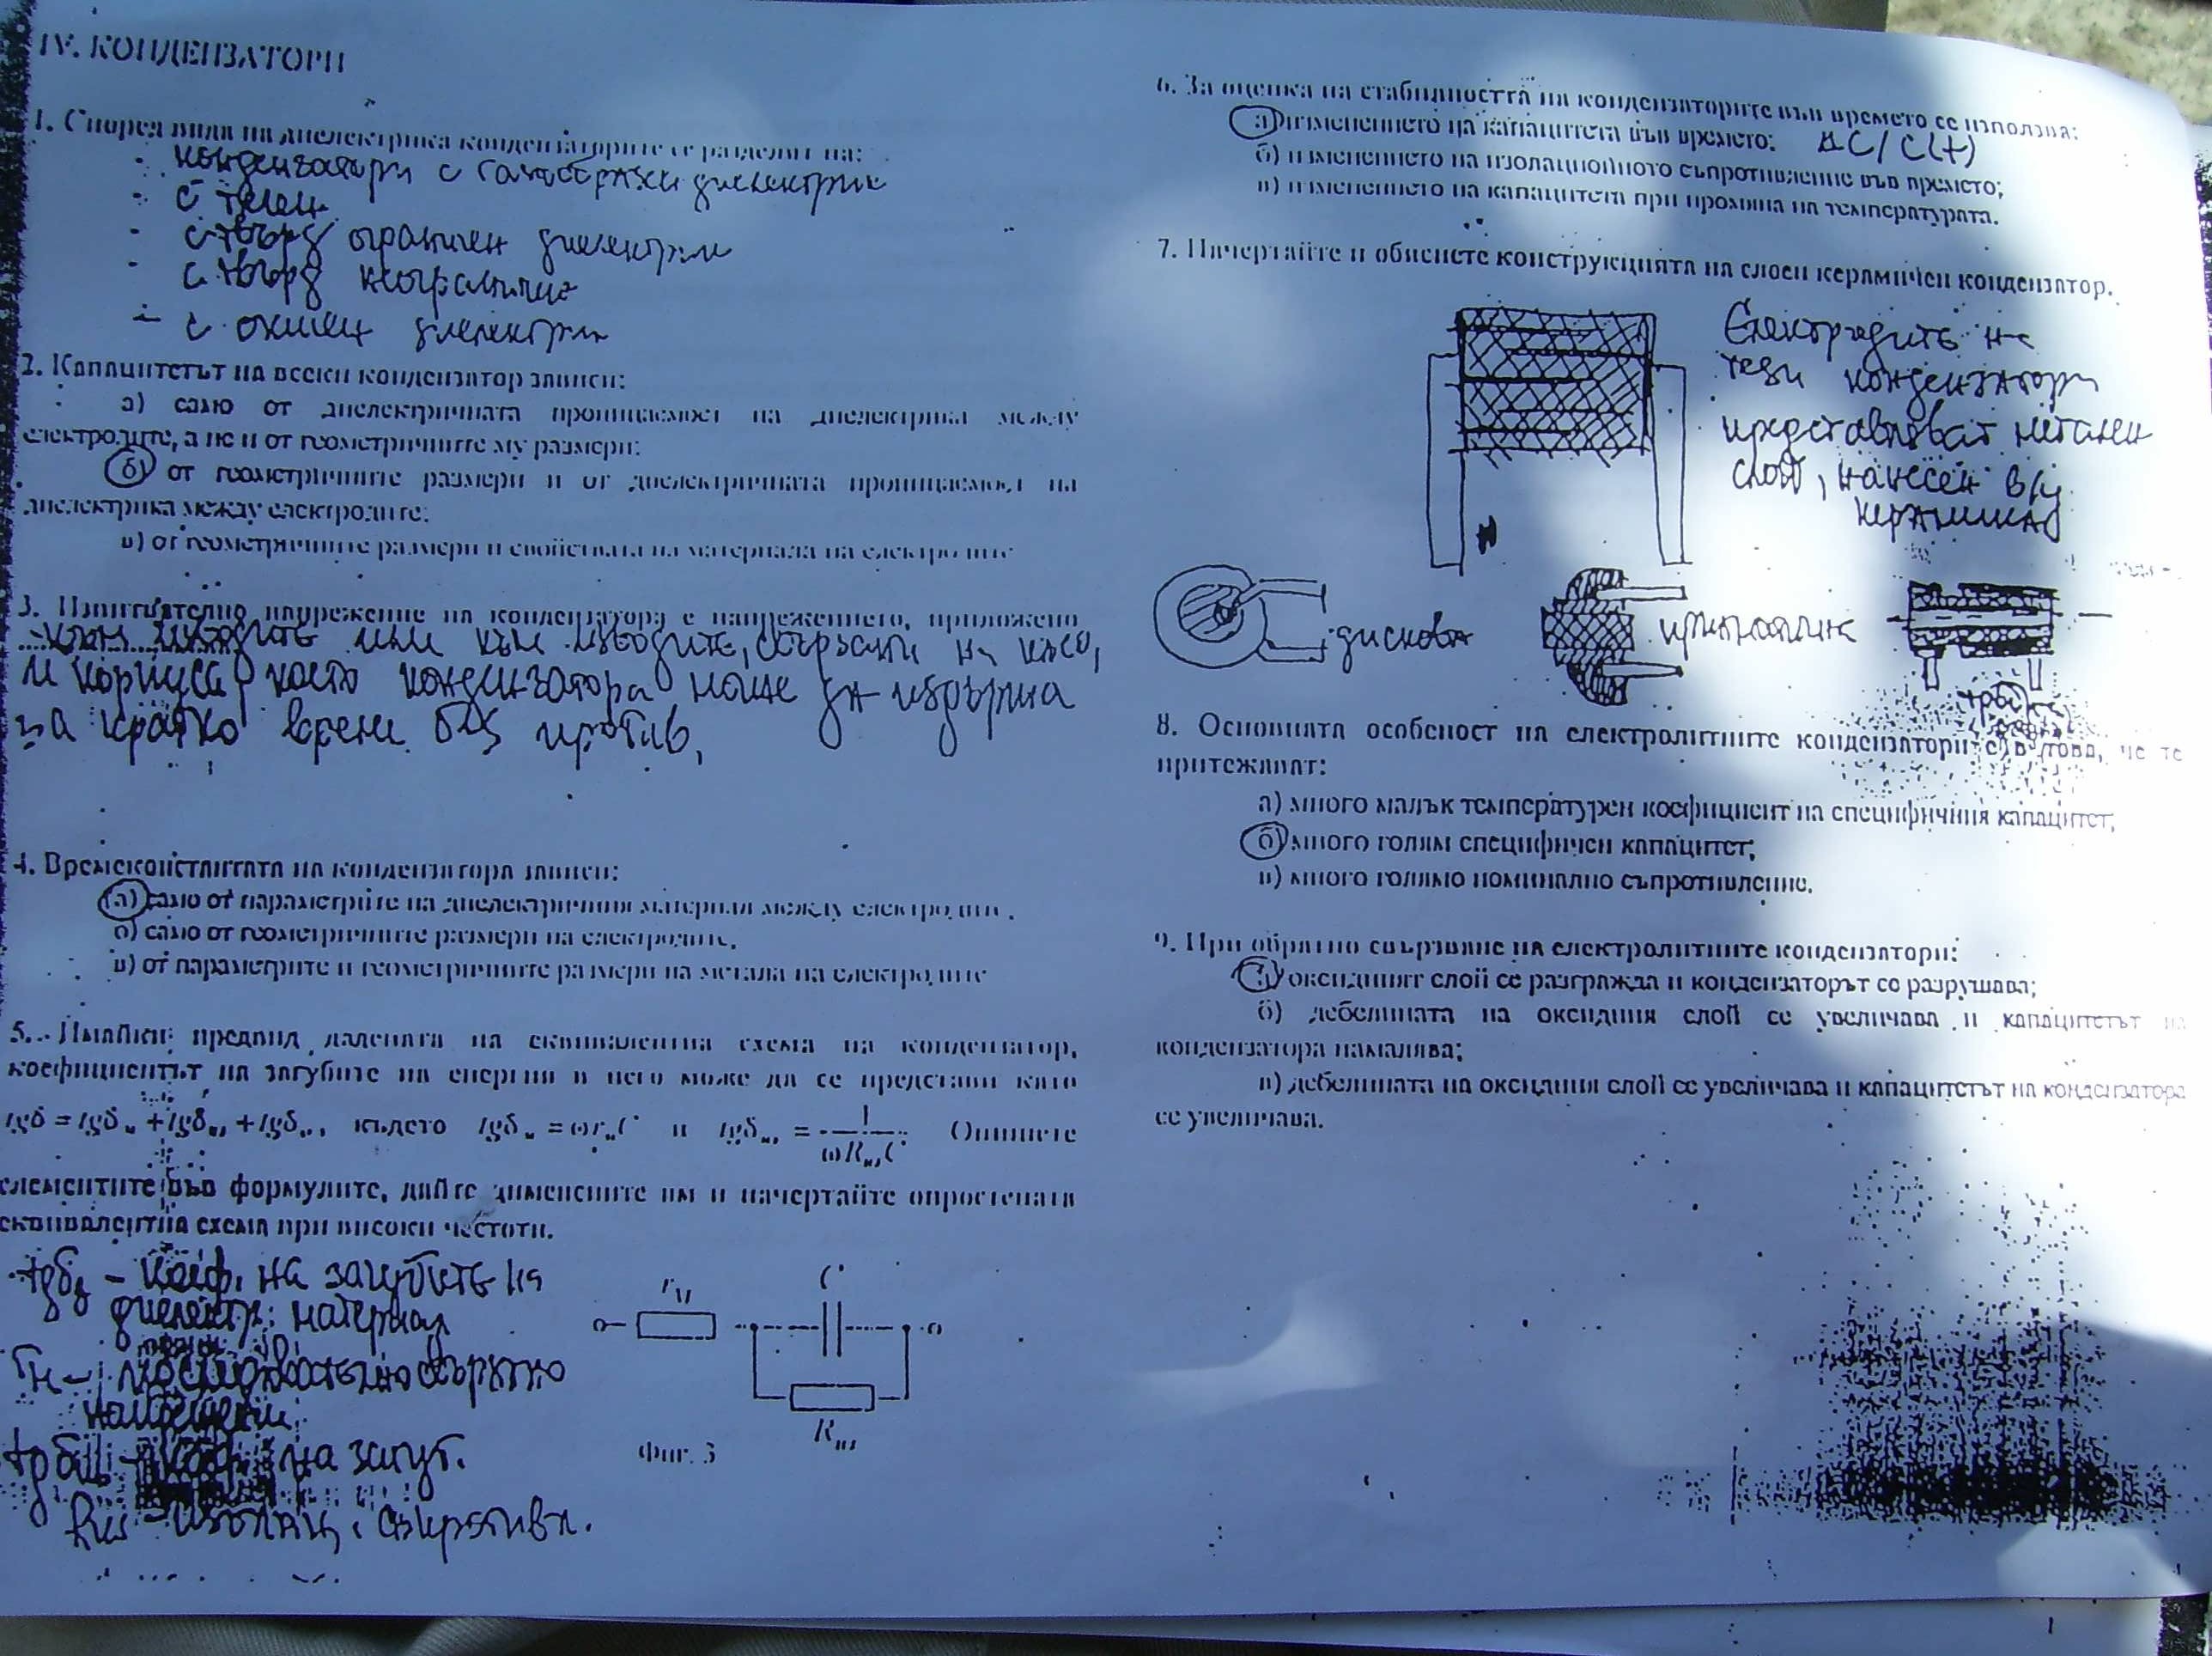 IV. КОНДЕНЗАТОРИ
1. Според вида на диелектрика кондензаторите се разделят на:
- кондензатори с газообразен диелектрик
- с течен
- с твърд органичен диелектрик
- с твърд неорганичен
- с оксиден диелектрик
2. Капацитетът на всеки кондензатор зависи:
а) само от диелектричната проницаемост на диелектрика между
електродите, а не и от геометричните му размери;
б) от геометричните размери и от диелектричната проницаемост на
диелектрика между електродите;
в) от геометричните размери и свойствата на материала на електродите
3. Изпитвателно напрежение на кондензатора е напрежението, приложено
към изводите или към изводите, свързани на късо,
и корпуса, което кондензатора може да издържа
за кратко време без пробив.
4. Времеконстантата на кондензатора зависи:
а) само от параметрите на диелектричния материал между електродите.
б) само от геометричните размери на електродите.
в) от параметрите и геометричните размери на метала на електродите
5. Имайки предвид дадената на еквивалентна схема на кондензатор,
коефициентът на загубите на енергия в него може да се представи като
tgδ = tgδм + tgδиз + tgδд, където tgδм = ωrмC и tgδиз = 1/ωRизC. Опишете
елементите във формулите, дайте дименсиите им и начертайте опростената
еквивалентна схема при високи честоти.
tgδд - коеф. на загубите на
диелектр. материал
последователно свързано
tgδ на загуб.
Rиз - изолац. съпротивл.
rм
C
Rиз
Фиг. 3
6. За оценка на стабилността на кондензаторите във времето се използва:
а) изменението на капацитета във времето; ΔC/C(t)
б) изменението на изолационното съпротивление във времето;
в) изменението на капацитета при промяна на температурата.
7. Начертайте и обяснете конструкцията на слоен керамичен кондензатор.
Електродите на
тези кондензатори
представляват метален
слой, нанесен в/у
керамика
дискова
тръбна
8. Основната особеност на електролитните кондензаторите е в това, че те
притежават:
а) много малък температурен коефициент на специфичния капацитет;
б) много голям специфичен капацитет;
в) много голямо номинално съпротивление.
9. При обратно свързване на електролитните кондензатори:
а) оксидният слой се разгражда и кондензаторът се разрушава;
б) дебелината на оксидния слой се увеличава и капацитетът на
кондензатора намалява;
в) дебелината на оксидния слой се увеличава и капацитетът на кондензатора
се увеличава.